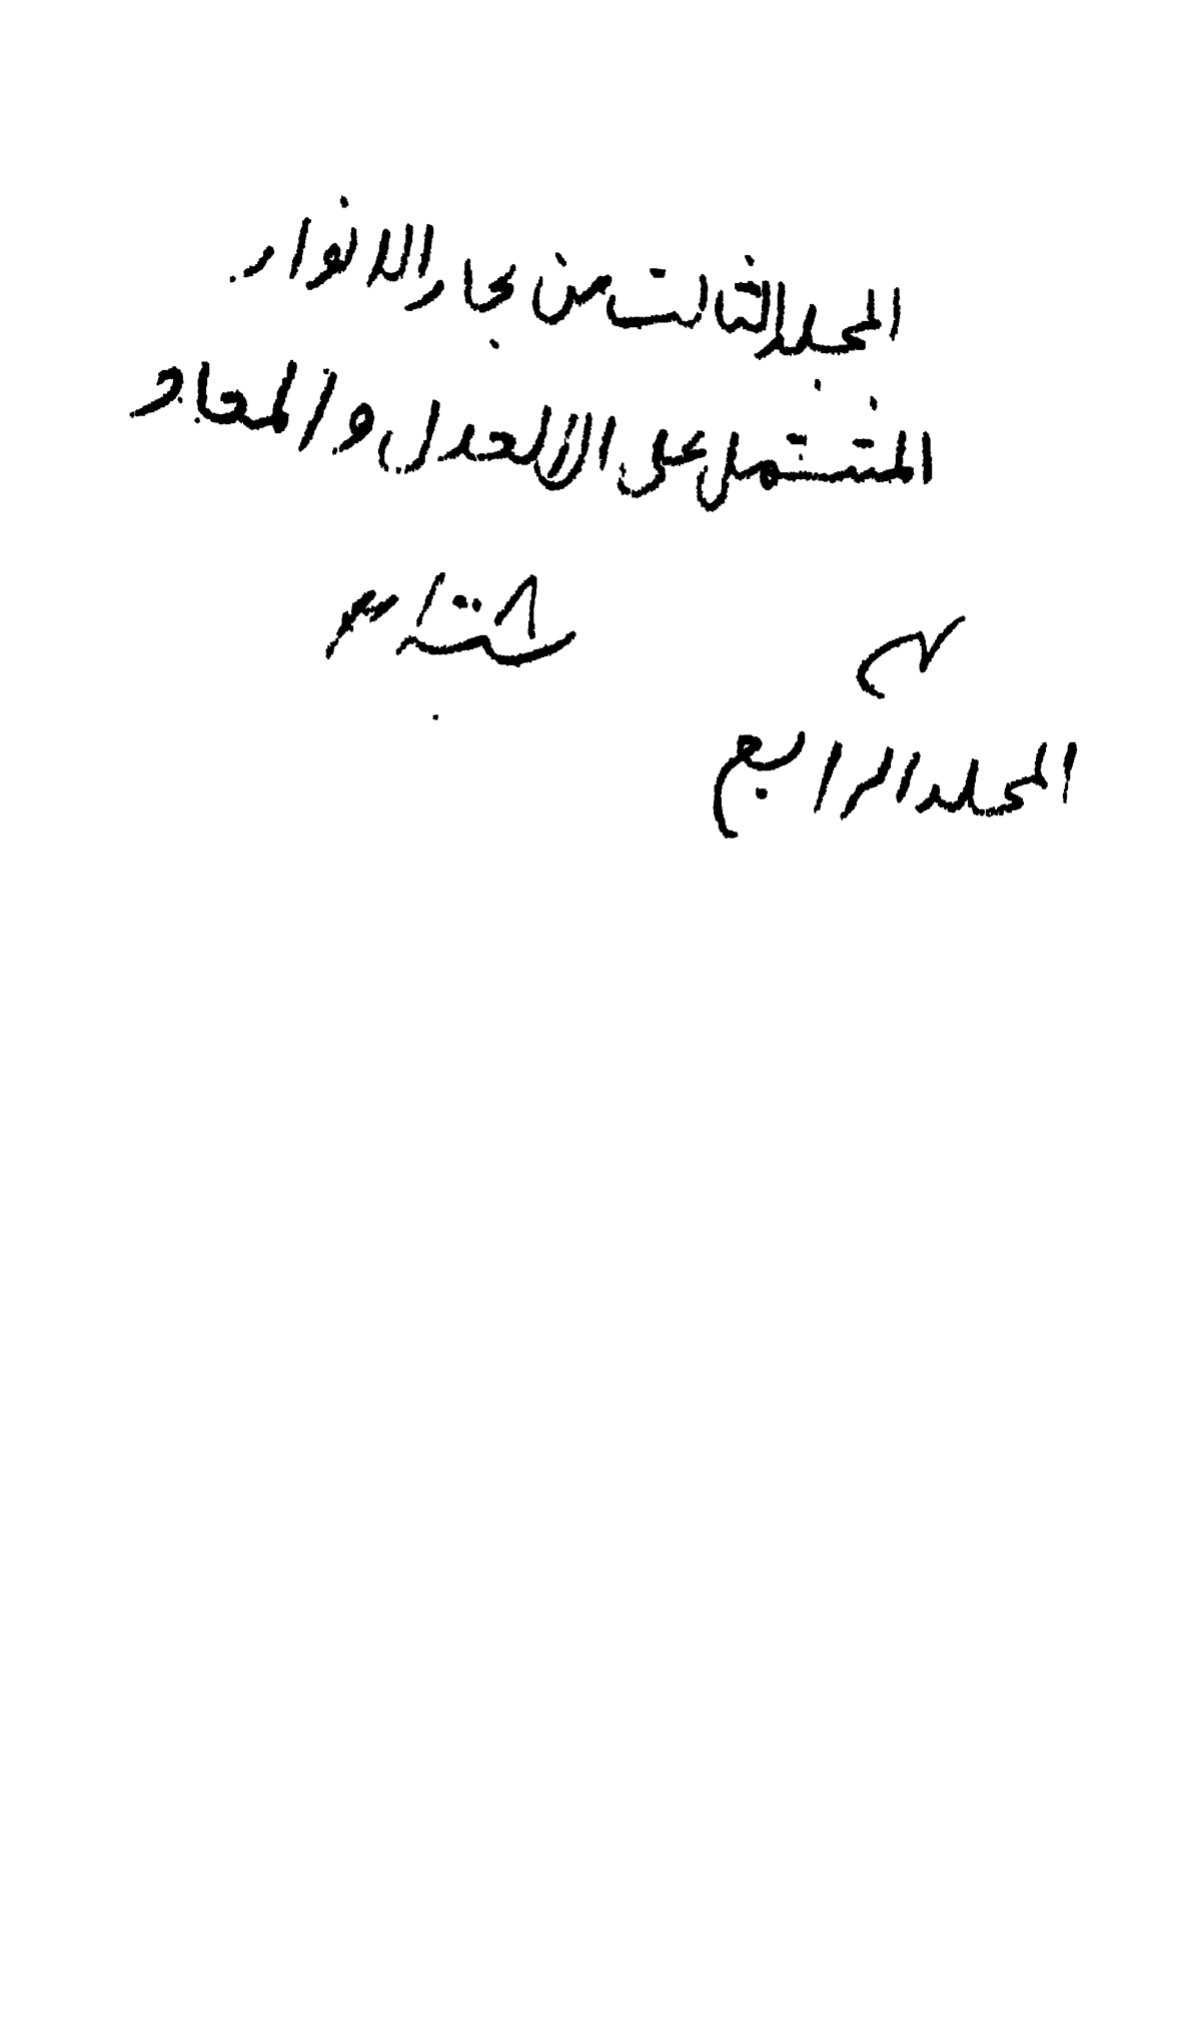 المجلد الثالث من بحار الانوار
المشتمل على العدل والمعاد
المجلد الرابع